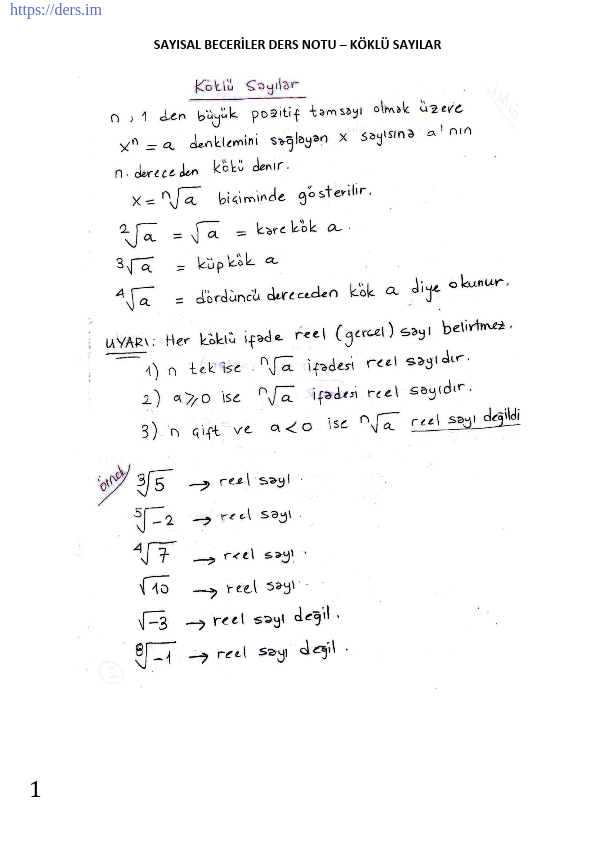 https://ders.im
SAYISAL BECERİLER DERS NOTU – KÖKLÜ SAYILAR
Köklü Sayılar
n, 1 den büyük pozitif tamsayı olmak üzere
xⁿ = a denklemini sağlayan x sayısına a'nın
n. dereceden kökü denir.
x = ⁿ√a biçiminde gösterilir.
²√a = √a = karekök a.
³√a = küpkök a
⁴√a = dördüncü dereceden kök a diye okunur.
UYARI: Her köklü ifade reel (gerçel) sayı belirtmez.
1) n tek ise ⁿ√a ifadesi reel sayıdır.
2) a ≥ 0 ise ⁿ√a ifadesi reel sayıdır.
3) n çift ve a < 0 ise ⁿ√a reel sayı değildi
örnek ³√5 → reel sayı.
⁵√-2 → reel sayı.
⁴√7 → reel sayı.
√10 → reel sayı.
√-3 → reel sayı değil.
⁸√-1 → reel sayı değil.
1